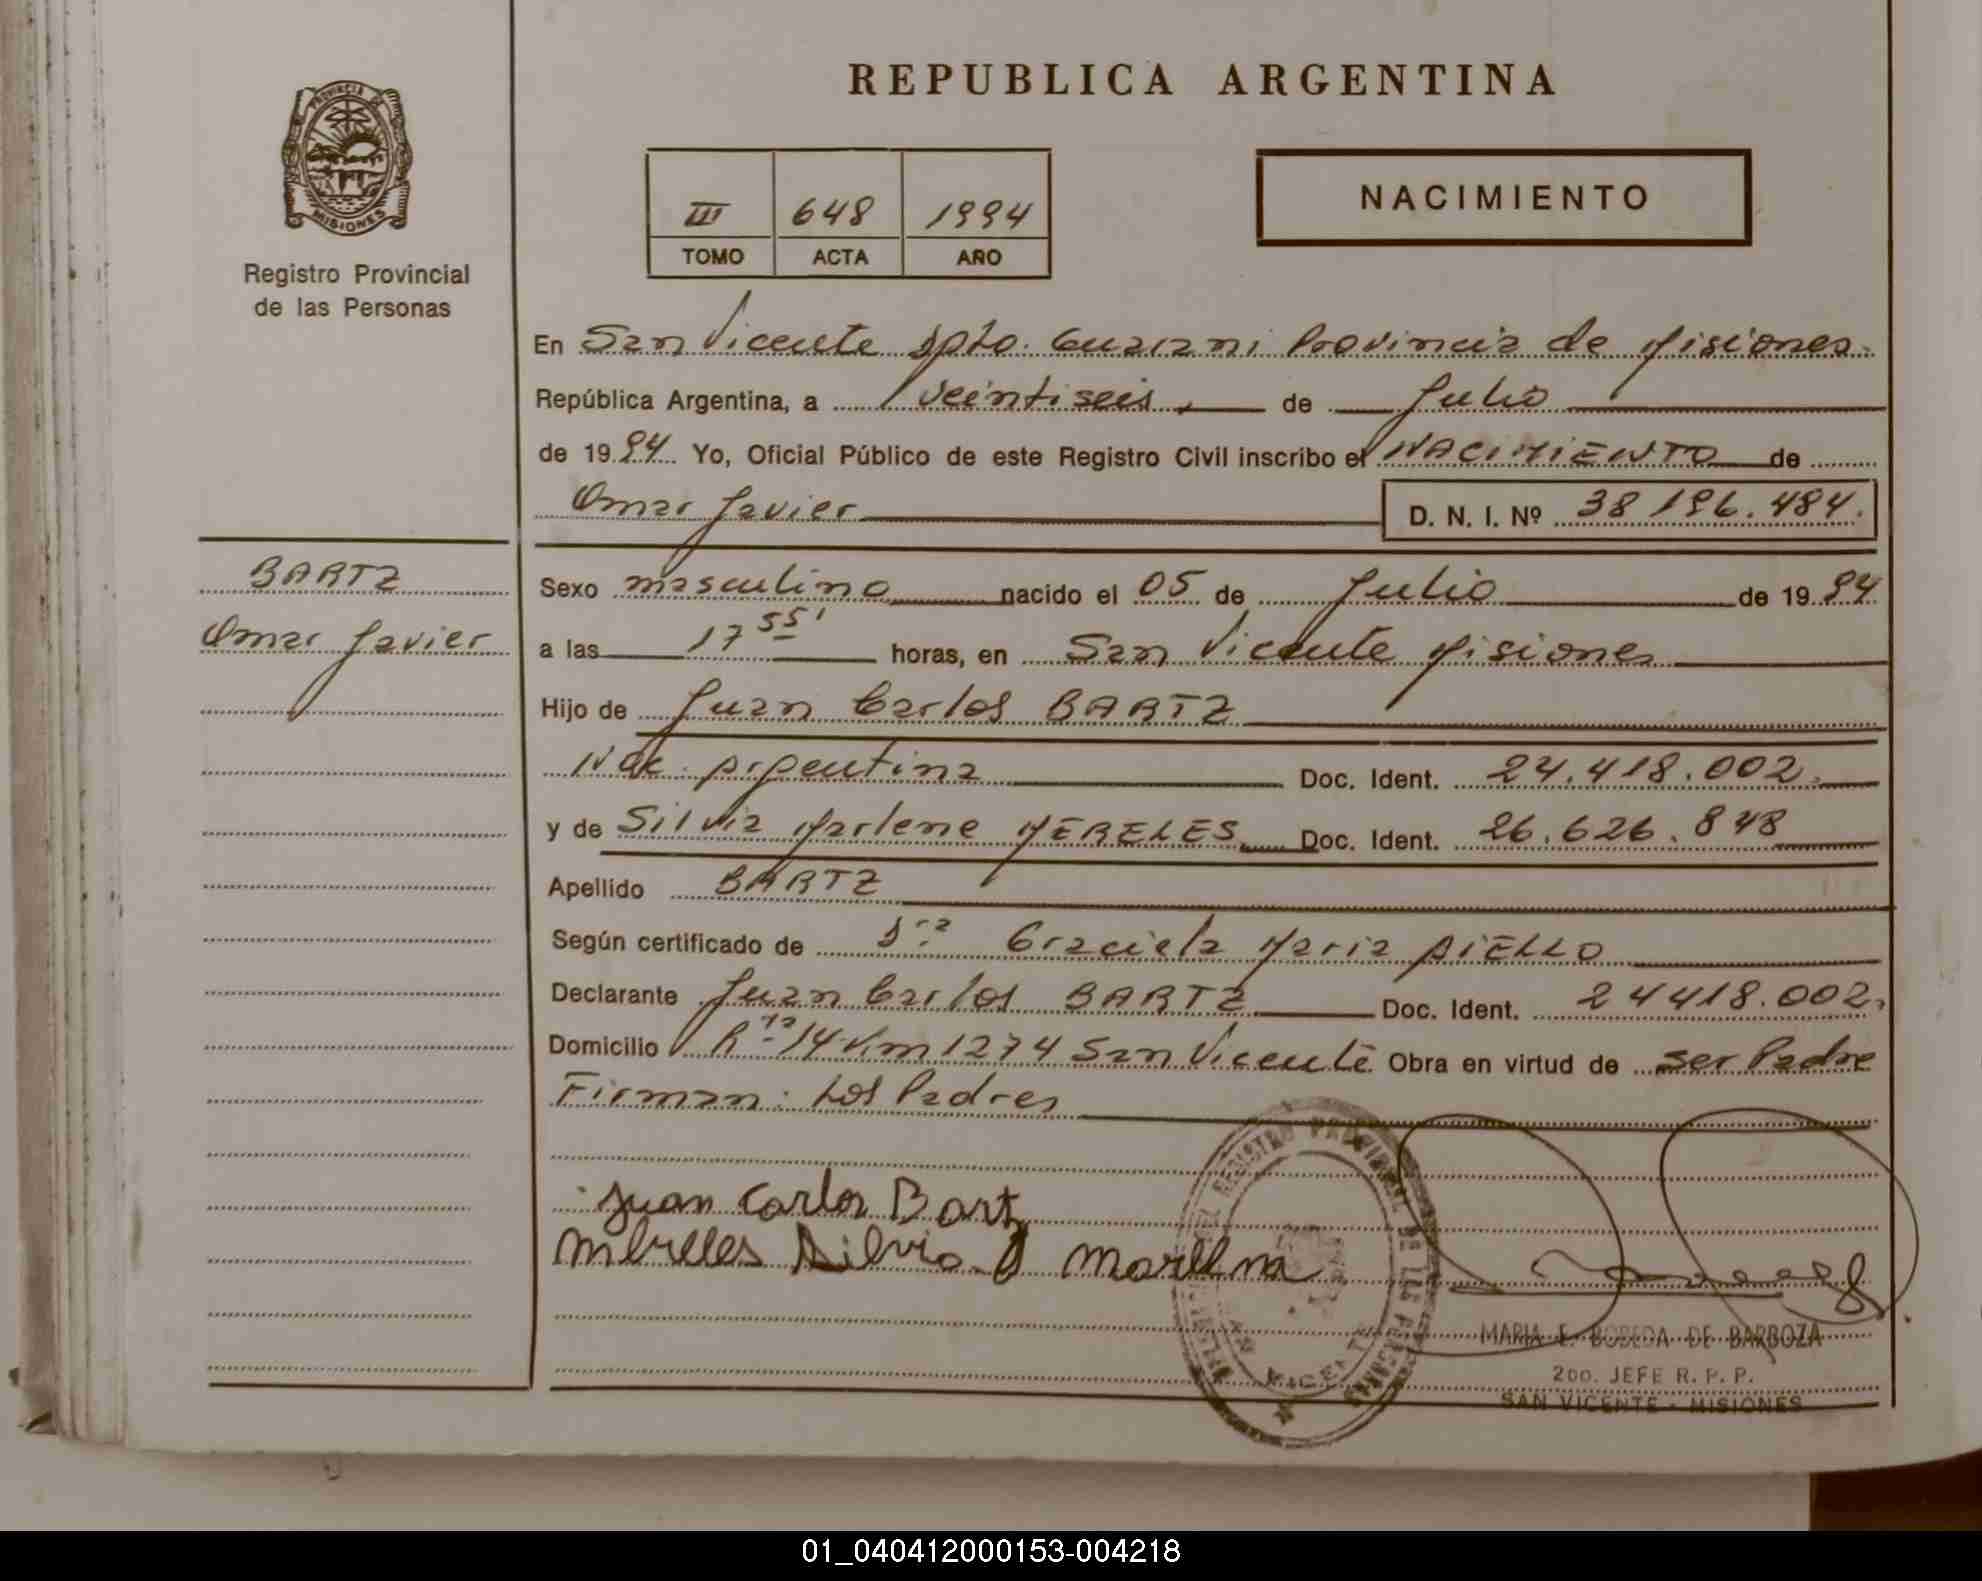 REPUBLICA ARGENTINA
PROVINCIA DE
MISIONES
Registro Provincial
de las Personas
III 648 1994
TOMO ACTA AÑO
NACIMIENTO
En San Vicente Dpto. Guarani Provincia de Misiones
República Argentina, a veintiseis, de Julio
de 1994 Yo, Oficial Público de este Registro Civil inscribo el NACIMIENTO de
Omar Javier D. N. I. Nº 38 196.484.
BARTZ
Omar Javier
Sexo masculino nacido el 05 de Julio de 1994
a las 17 55' horas, en San Vicente Misiones
Hijo de Juan Carlos BARTZ
Nac. Argentina Doc. Ident. 24.418.002.
y de Silvia Marlene MERELES Doc. Ident. 26.626.848
Apellido BARTZ
Según certificado de Dra Graciela Maria AIELLO
Declarante Juan Carlos BARTZ Doc. Ident. 24418.002,
Domicilio Rta 14 Km 1274 San Vicente Obra en virtud de ser Padre
Firman: Los Padres
Juan Carlos Bartz
Silvia
REGISTRO PROVINCIAL DE LAS PERSONAS
MARIA E. BOBEDA DE BARBOZA
2DO. JEFE R. P. P.
SAN VICENTE - MISIONES
01_040412000153-004218